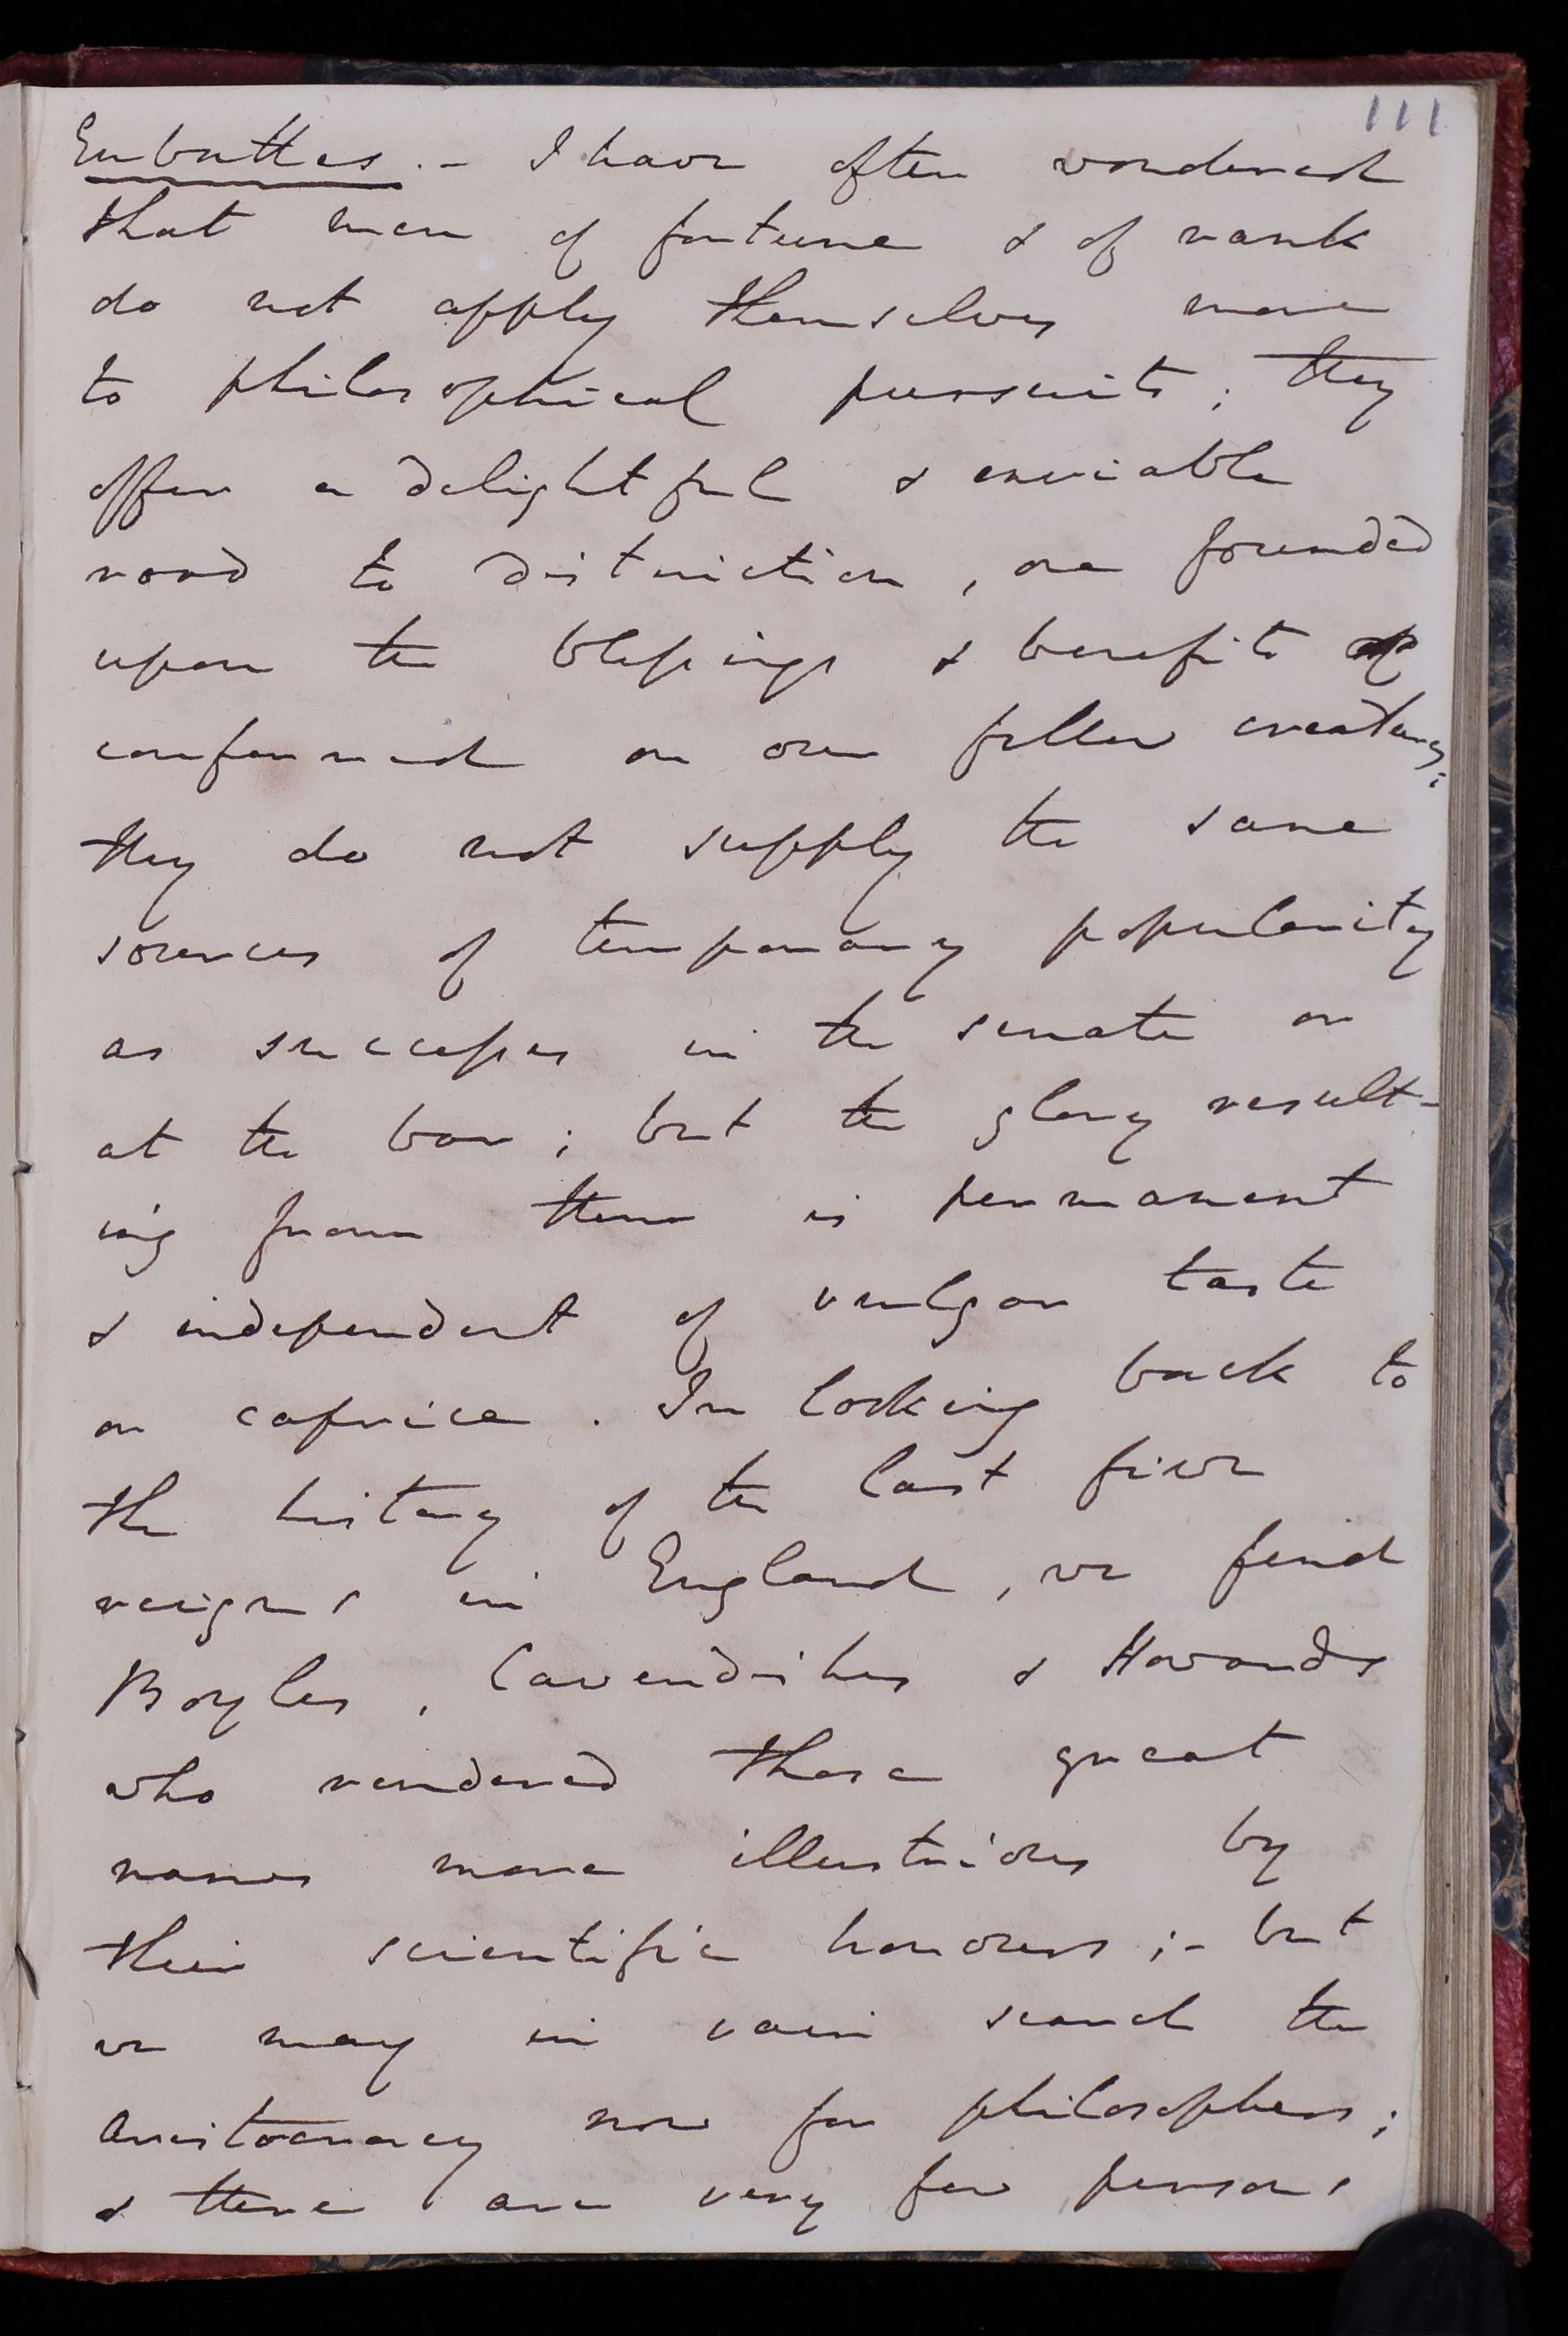 111
Eubathes.- I have often wondered
that men of fortune & of rank
do not apply themselves more
to philosophical pursuits; they
offer a delightful & enviable
road to distinction, one founded
upon the blessings & benefits
conferred on our fellow creatures;
they do not supply the same
sources of temporary popularity
as successes in the senate or
at the bar; but the glory result-
ing from them is permanent
& independent of vulgar taste
or caprice. In looking back to
the history of the last five
reigns in England, we find
Boyles, Cavendishes & Howards
who rendered those great
names more illustrious by
their scientific honours;- but
we may in vain search the
aristocracy now for philosophers;
& there are very few persons